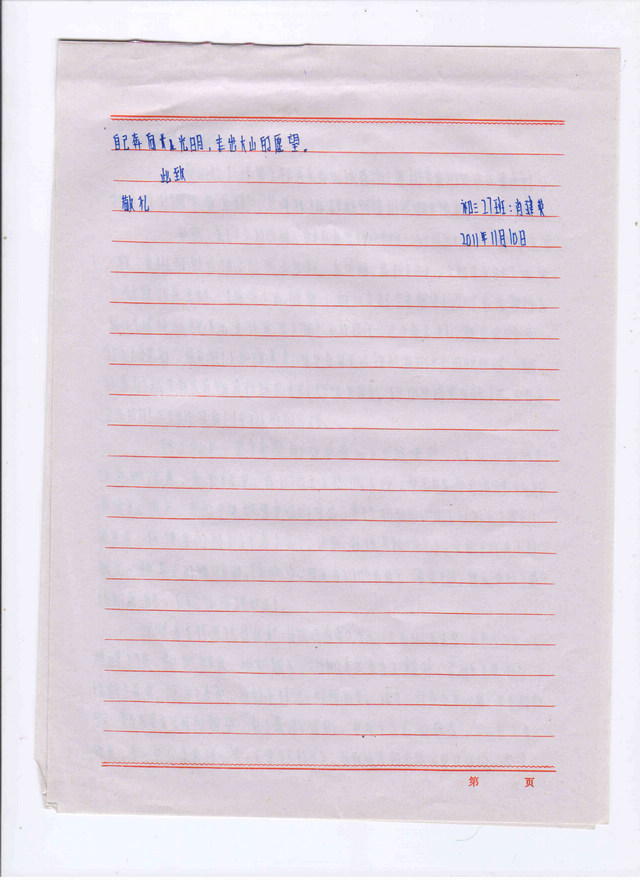 自己奔向光明,走出大山的愿望。
此致
敬礼
初二27班:肖建
2011年11月10日
第 页